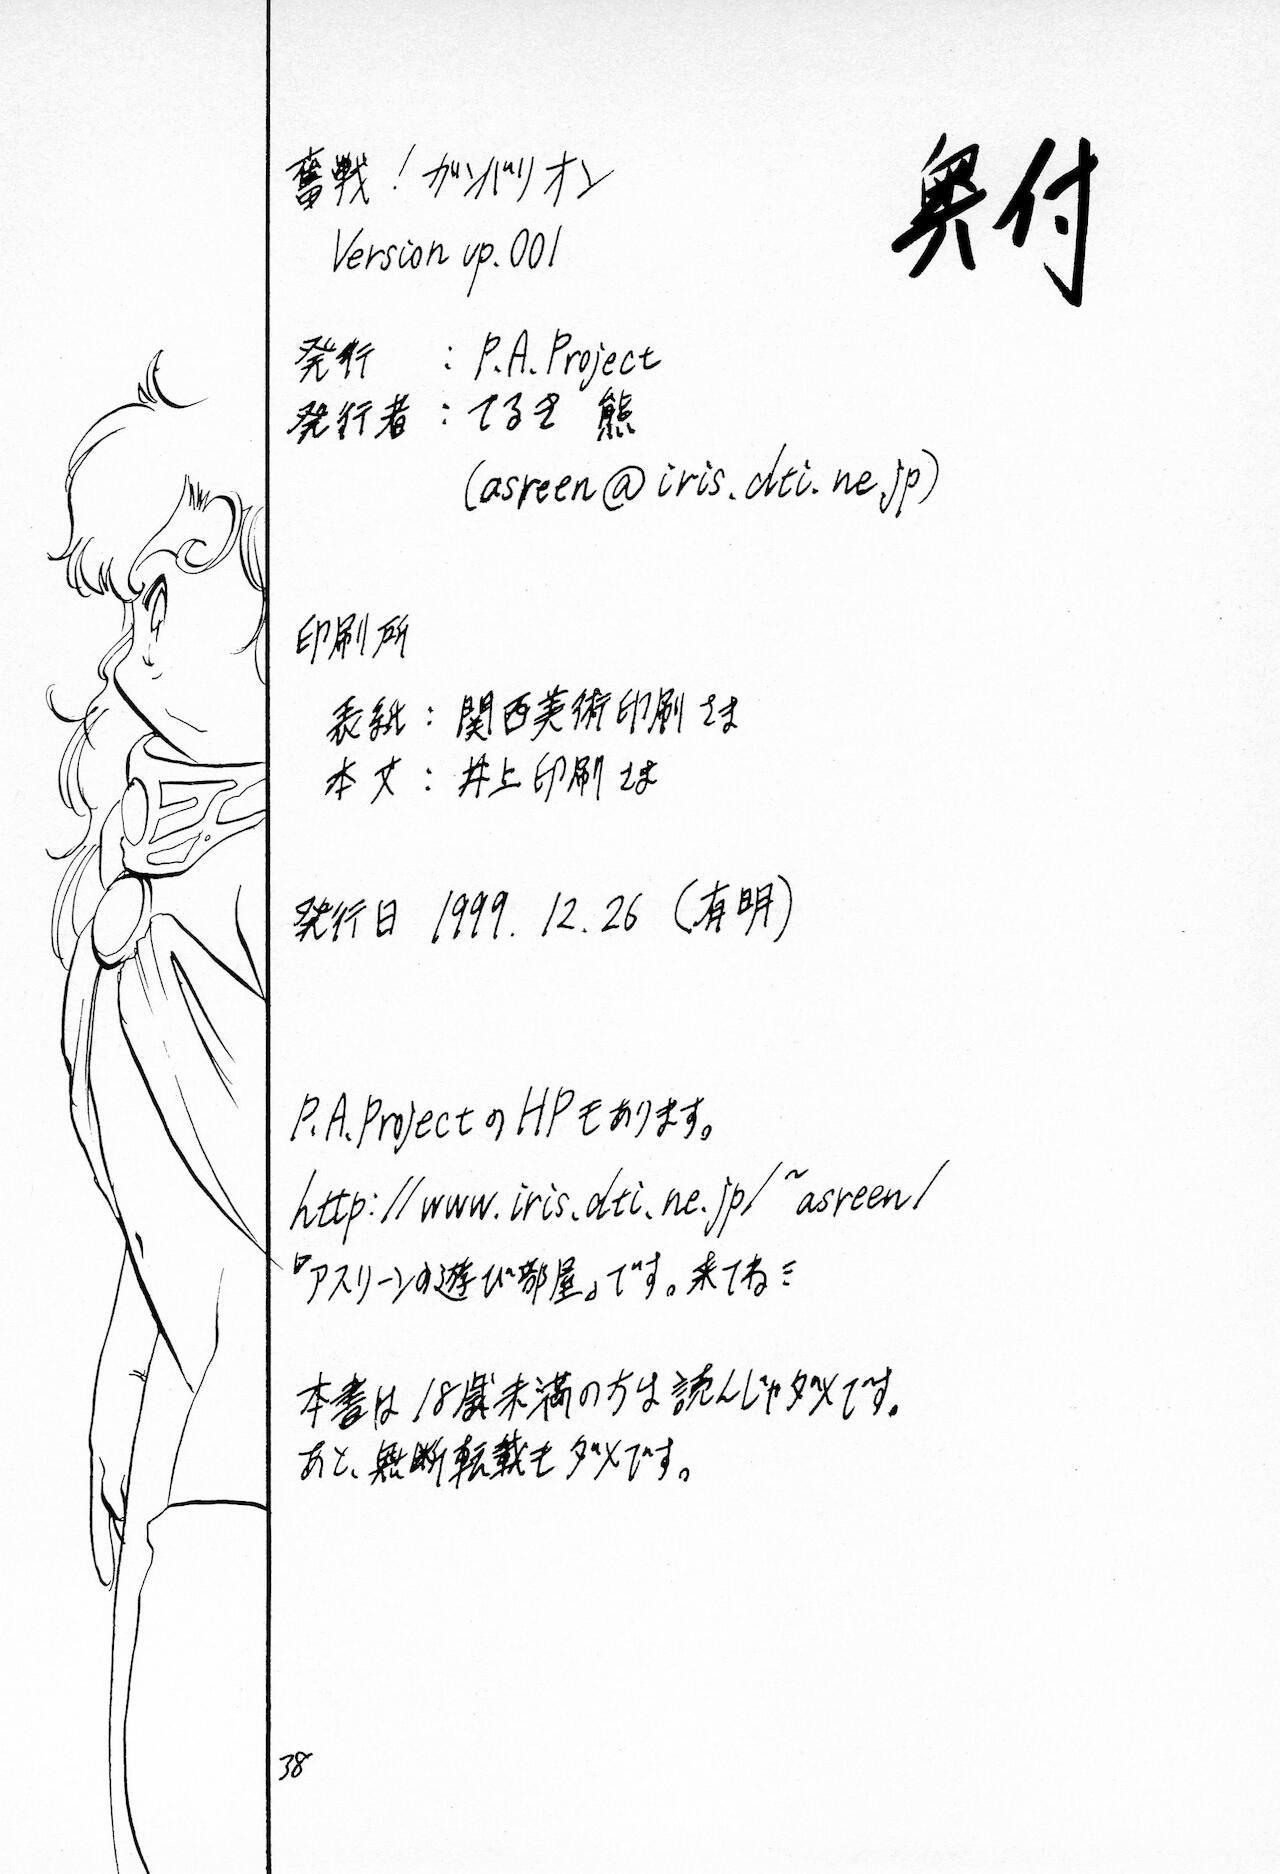 奥付
奮戦！ガンバリオン
Version up.001
発行　：P.A.Project
発行者：てるき 熊
(asreen@iris.dti.ne.jp)
印刷所
表紙：関西美術印刷さま
本文：井上印刷さま
発行日 1999.12.26（有明）
P.A.ProjectのHPもあります。
http://www.iris.dti.ne.jp/~asreen/
『アスリーンの遊び部屋』です。来てねミ
本書は18歳未満の方は読んじゃダメです。
あと、無断転載もダメです。
38